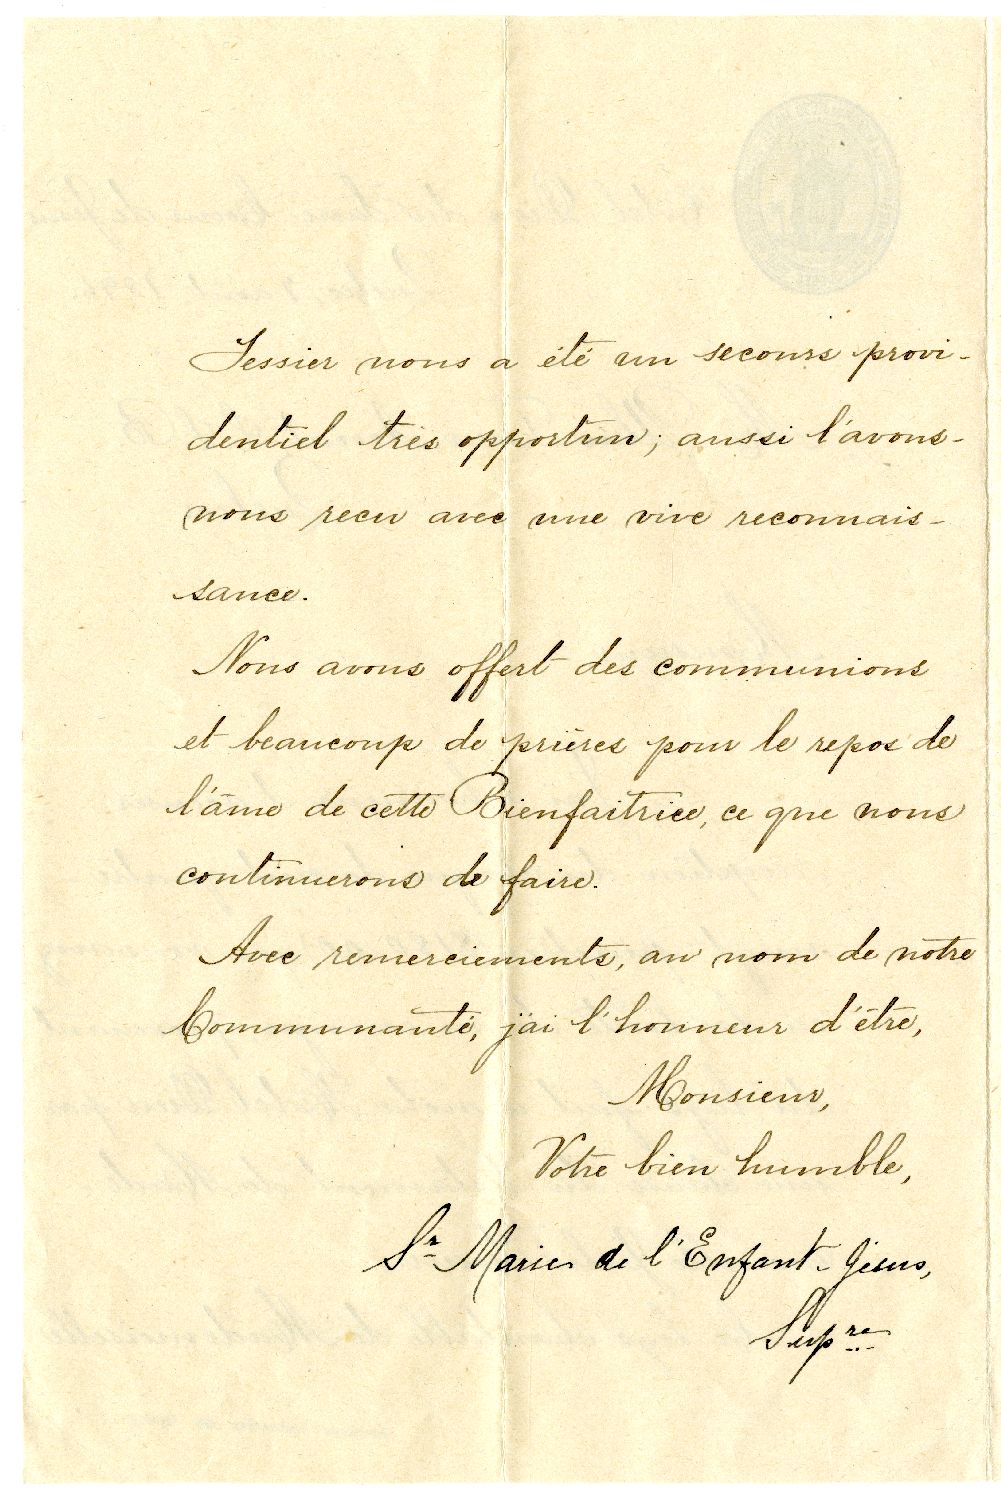 Tessier nous a été un secours provi-
dentiel très opportun; aussi l'avons-
nous reçu avec une vive reconnais-
sance.
Nous avons offert des communions
et beaucoup de prières pour le repos de
l'âme de cette Bienfaitrice, ce que nous
continuerons de faire.
Avec remerciements, au nom de notre
Communauté, j'ai l'honneur d'être,
Monsieur,
Votre bien humble,
Sr Marie de l'Enfant-Jésus,
Supre